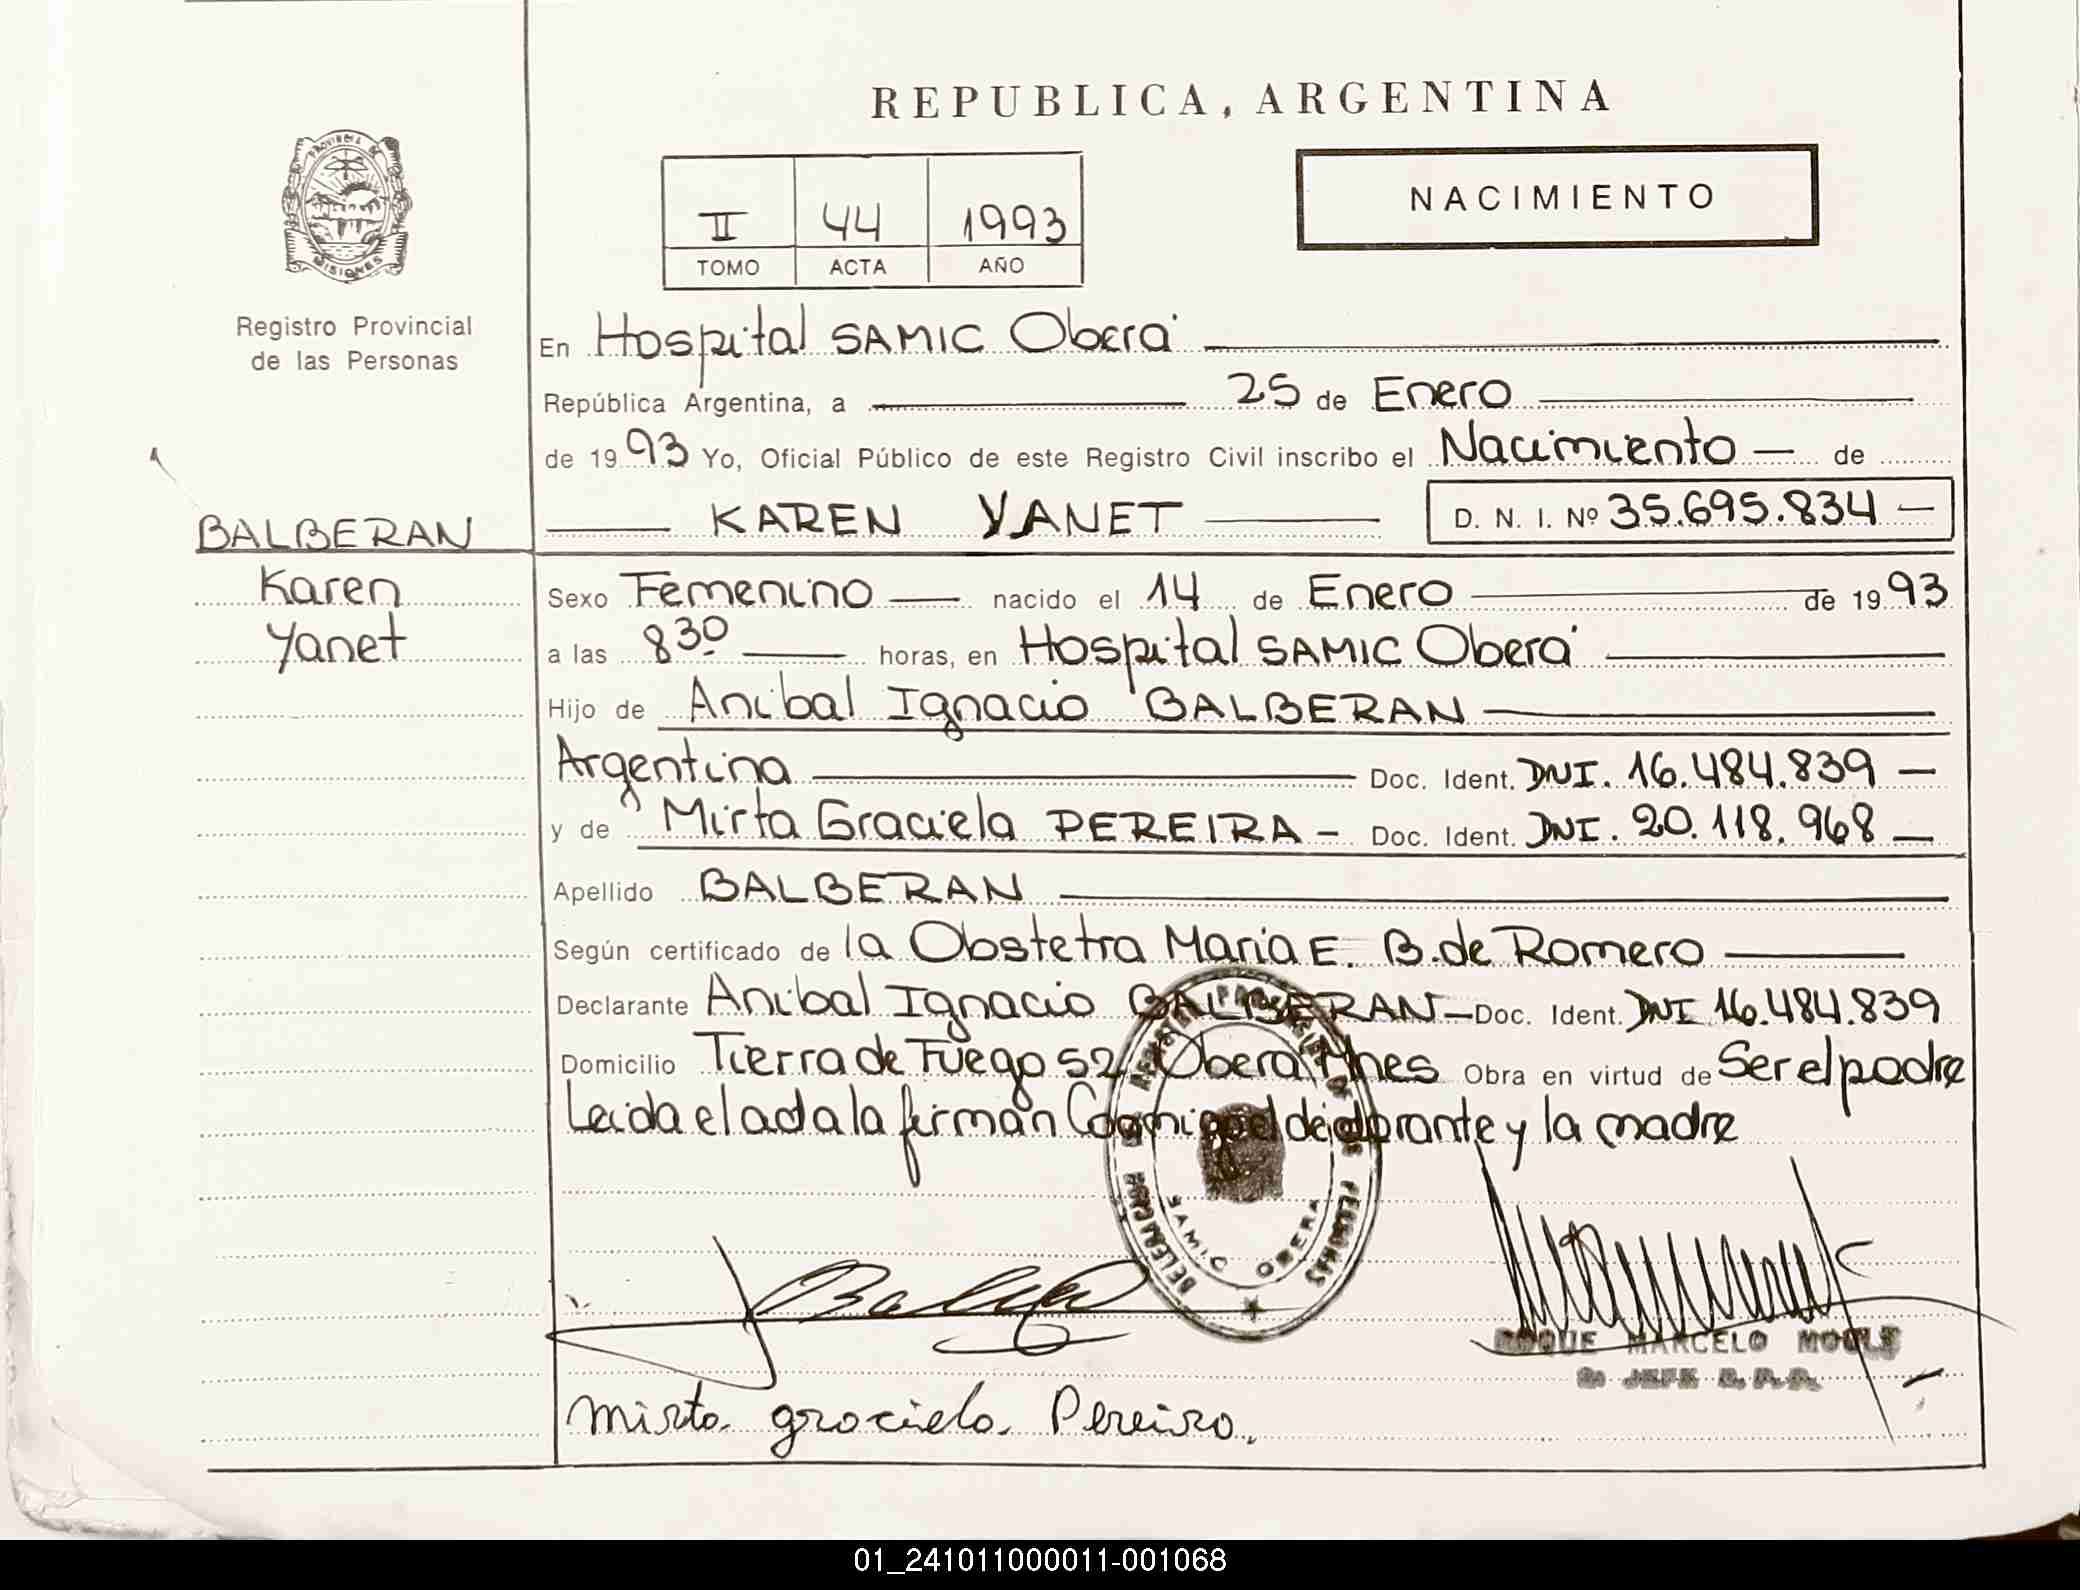 REPUBLICA, ARGENTINA
PROVINCIA DE
MISIONES
Registro Provincial
de las Personas
II 44 1993
TOMO ACTA AÑO
NACIMIENTO
En Hospital SAMIC Oberá
República Argentina, a 25 de Enero
de 1993 Yo, Oficial Público de este Registro Civil inscribo el Nacimiento — de
KAREN YANET D. N. I. Nº 35.695.834 —
BALBERAN
Karen
Yanet
Sexo Femenino — nacido el 14 de Enero de 1993
a las 8 30 horas, en Hospital SAMIC Oberá
Hijo de Anibal Ignacio BALBERAN
Argentina Doc. Ident. DNI. 16.484.839 —
y de Mirta Graciela PEREIRA - Doc. Ident. DNI. 20.118.968 —
Apellido BALBERAN
Según certificado de la Obstetra Maria E. B. de Romero
Declarante Anibal Ignacio BALBERAN — Doc. Ident. DNI 16.484.839
Domicilio Tierra de Fuego 52 Obera Mnes Obra en virtud de Ser el padre
Leida el acta la firman Conmigo el declarante y la madre
SAMIC OBERA
ROQUE MARCELO
mirta graciela Pereira.
01_241011000011-001068